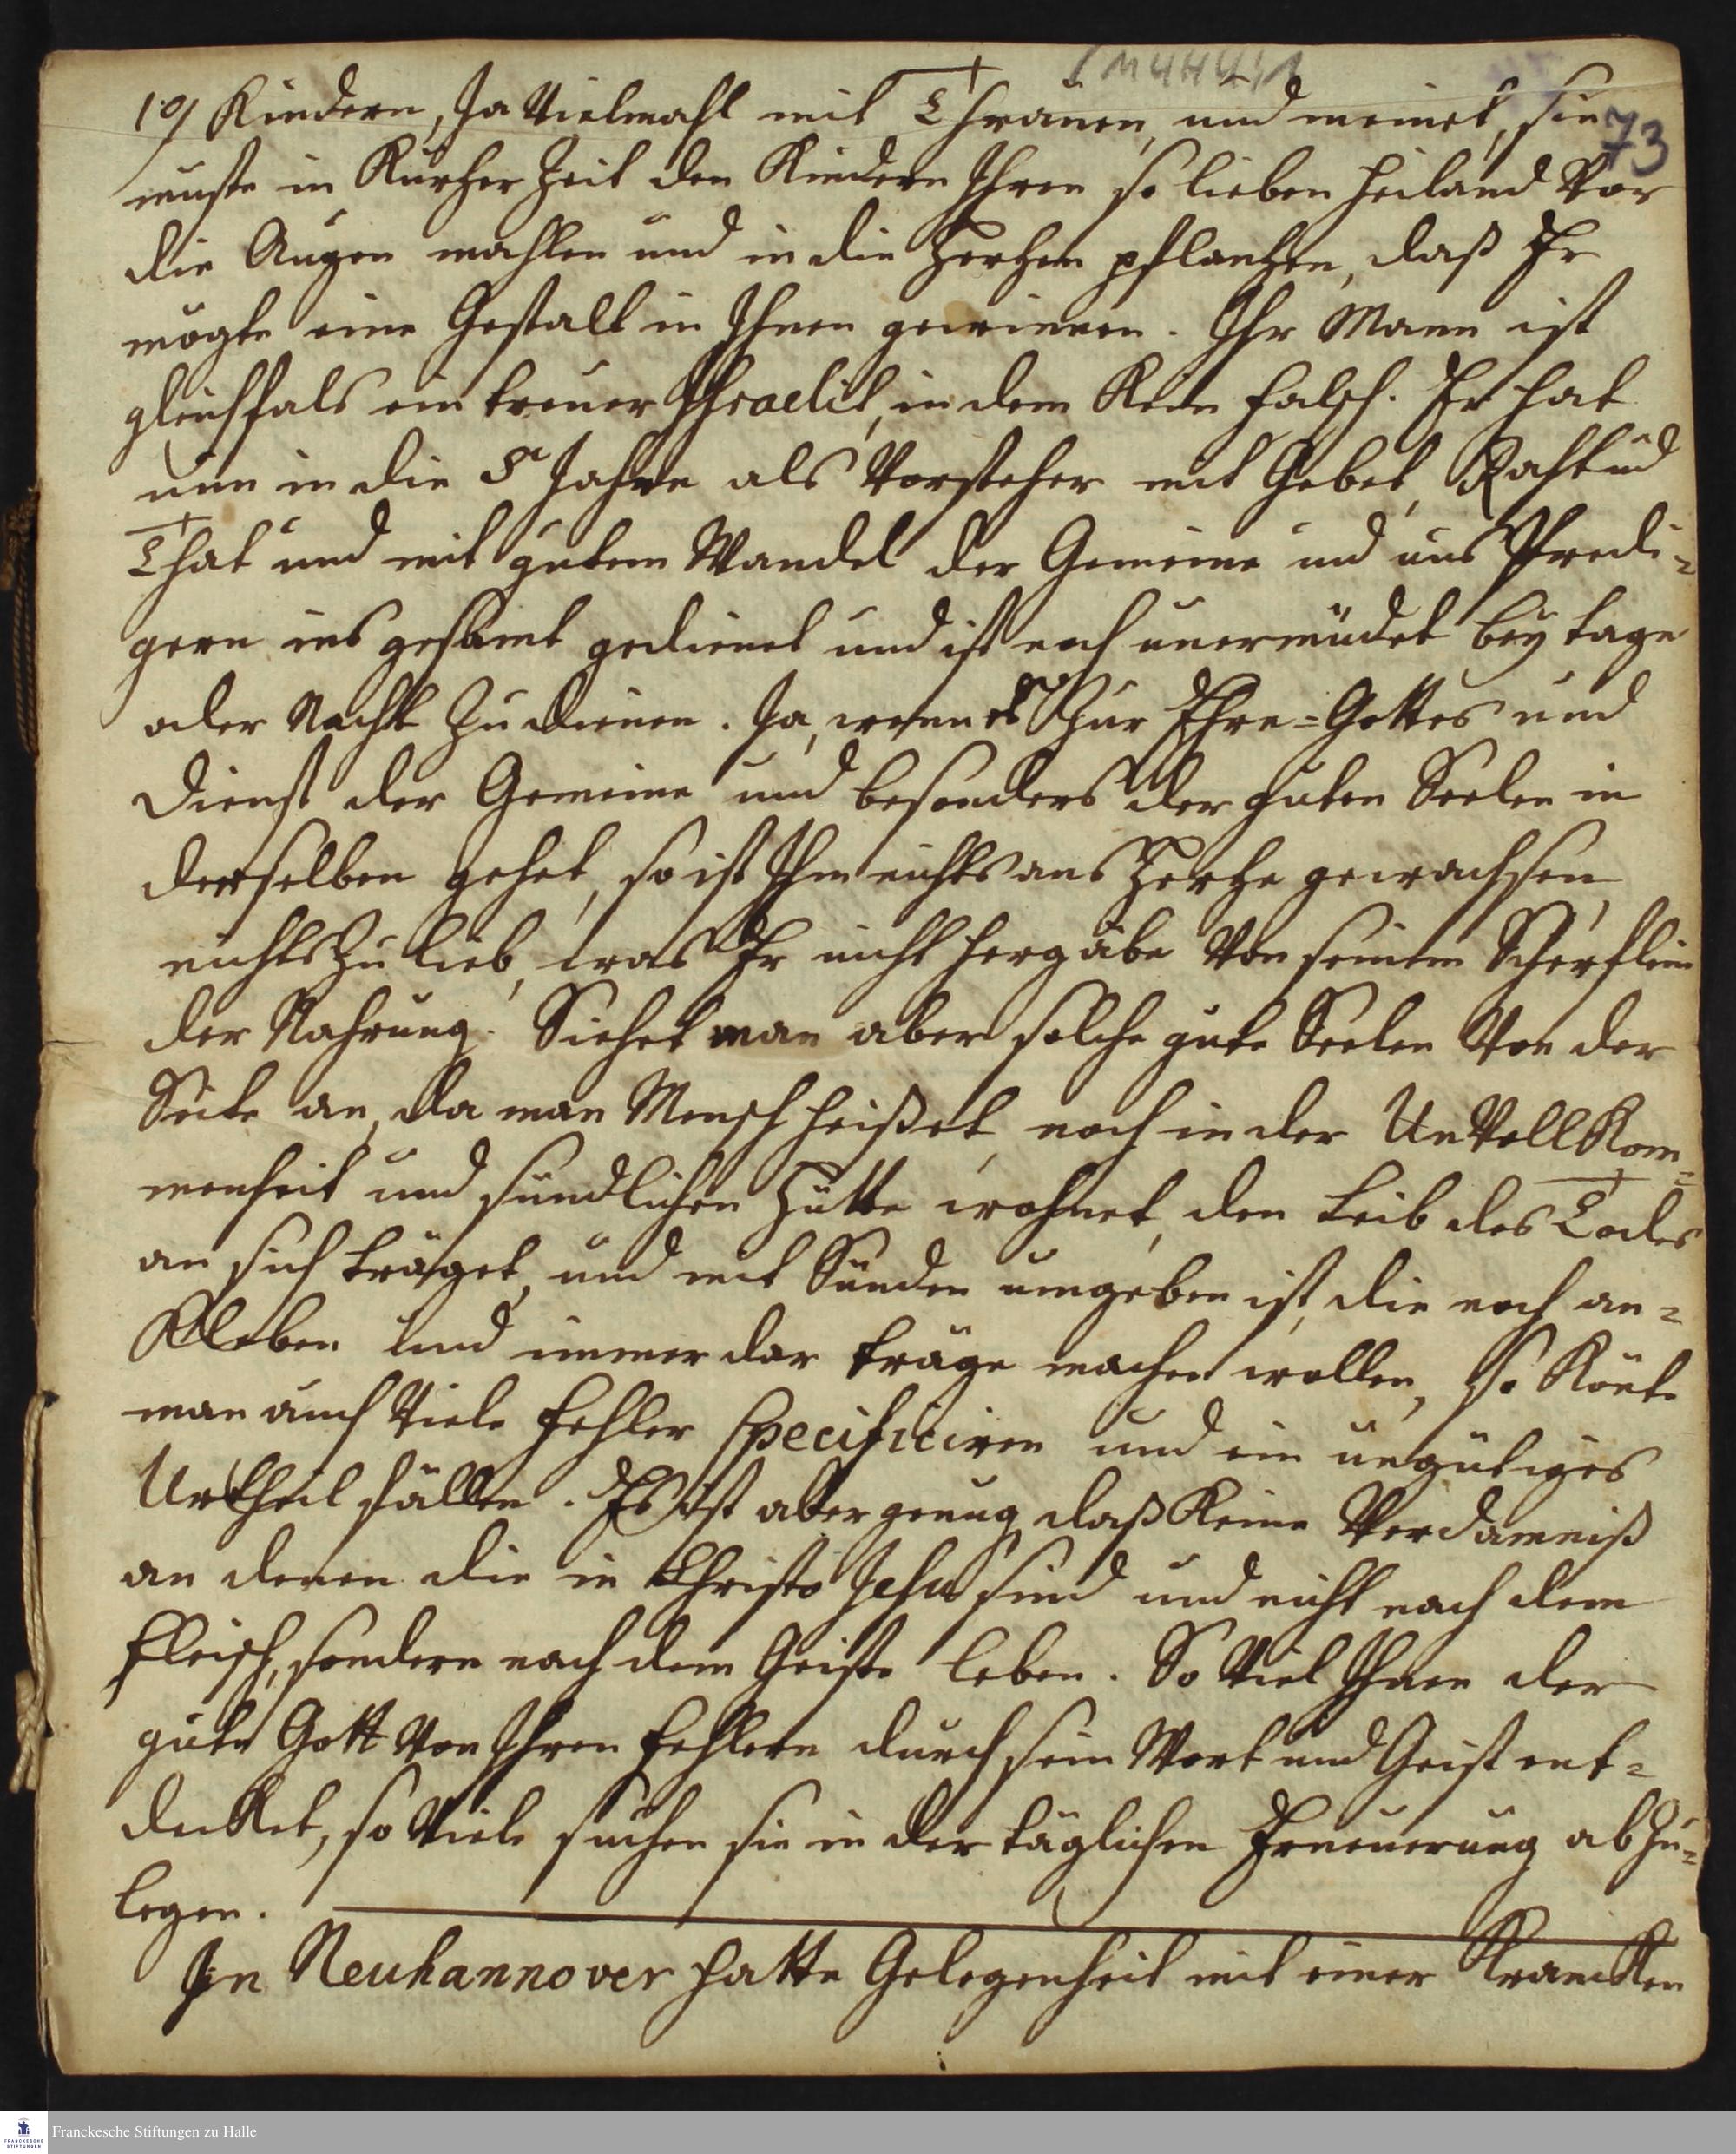 19/ Kindern, Ja Vielmahl mit Thränen, und meinet, sie
73
müste in Kurtzer Zeit den Kindern Ihren so lieben Heiland Vor
die Augen mahlen und in die Hertzen pflantzen, daß Er
mögte eine Gestalt in Ihnen gewinnen. Ihr Mann ist
gleichfals ein treuer Jsraelit, in dem Kein falsch. Er hat
nun in die 5te Jahre als Vorsteher mit Gebet, Raht und
That und mit gutem Wandel der Gemeine und uns Predi-
gern ins gesamt gedienet und ist noch unermüdet bey tage
oder Nacht Zu dienen. Ja, wenn es Zur Ehre-Gottes und
Dienst der Gemeine und besonders der guten Seelen in
derselben gehet, so ist Ihm nichts ans Hertze gewachsen,
nichts Zu lieb, was Er nicht hergäbe Von seinem Scherflein
der Nahrung. Siehet man aber solche gute Seelen Von der
Seite an, da man Mensch heißet, noch in der UnVollKom-
menheit und sündlichen Hütte wohnet, den Leib des Todes
an sich träget, und mit Sünden umgeben ist, die noch an-
Kleben und immer dar träge machen wollen, So Könte
man auch Viele Fehler specificiren und ein ungütiges
Urtheil fällen. Es ist aber genug, daß Keine Verdamniß
an denen die in Christo Jesu sind und nicht nach dem
Fleisch, sondern nach dem Geiste leben. So Viel Ihnen der
gute Gott Von Ihren Fehlern durch sein Wort und Geist ent-
decket, so Viele suchen sie in der täglichen Erneuerung abZu-
legen.
In Neuhannover hatte Gelegenheit mit einer Krancken
Franckesche Stiftungen zu Halle